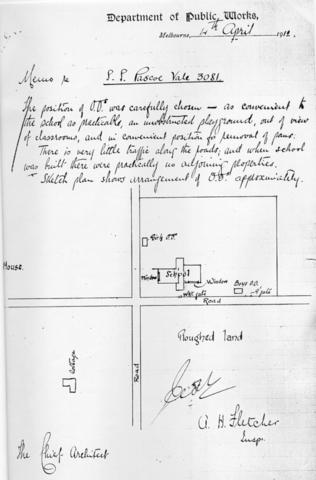 Department of Public Works,
Melbourne, 4th April 1912.
Memo re S. S. Pascoe Vale 3081.
The position of O.Os was carefully chosen — as convenient to
the school as practicable, an unobstructed playground, out of view
of classrooms, and in convenient position for removal of pans.
There is very little traffic along the roads; and when school
was built there were practically no adjoining properties.
Sketch plan shows arrangement of O.Os approximately.
Girls O.O.
House.
Window
School
Window
Boys O.O.
gate
gate
Road
Ploughed land
Cottage
Road
A. H. Fletcher
Insp.
The Chief Architect